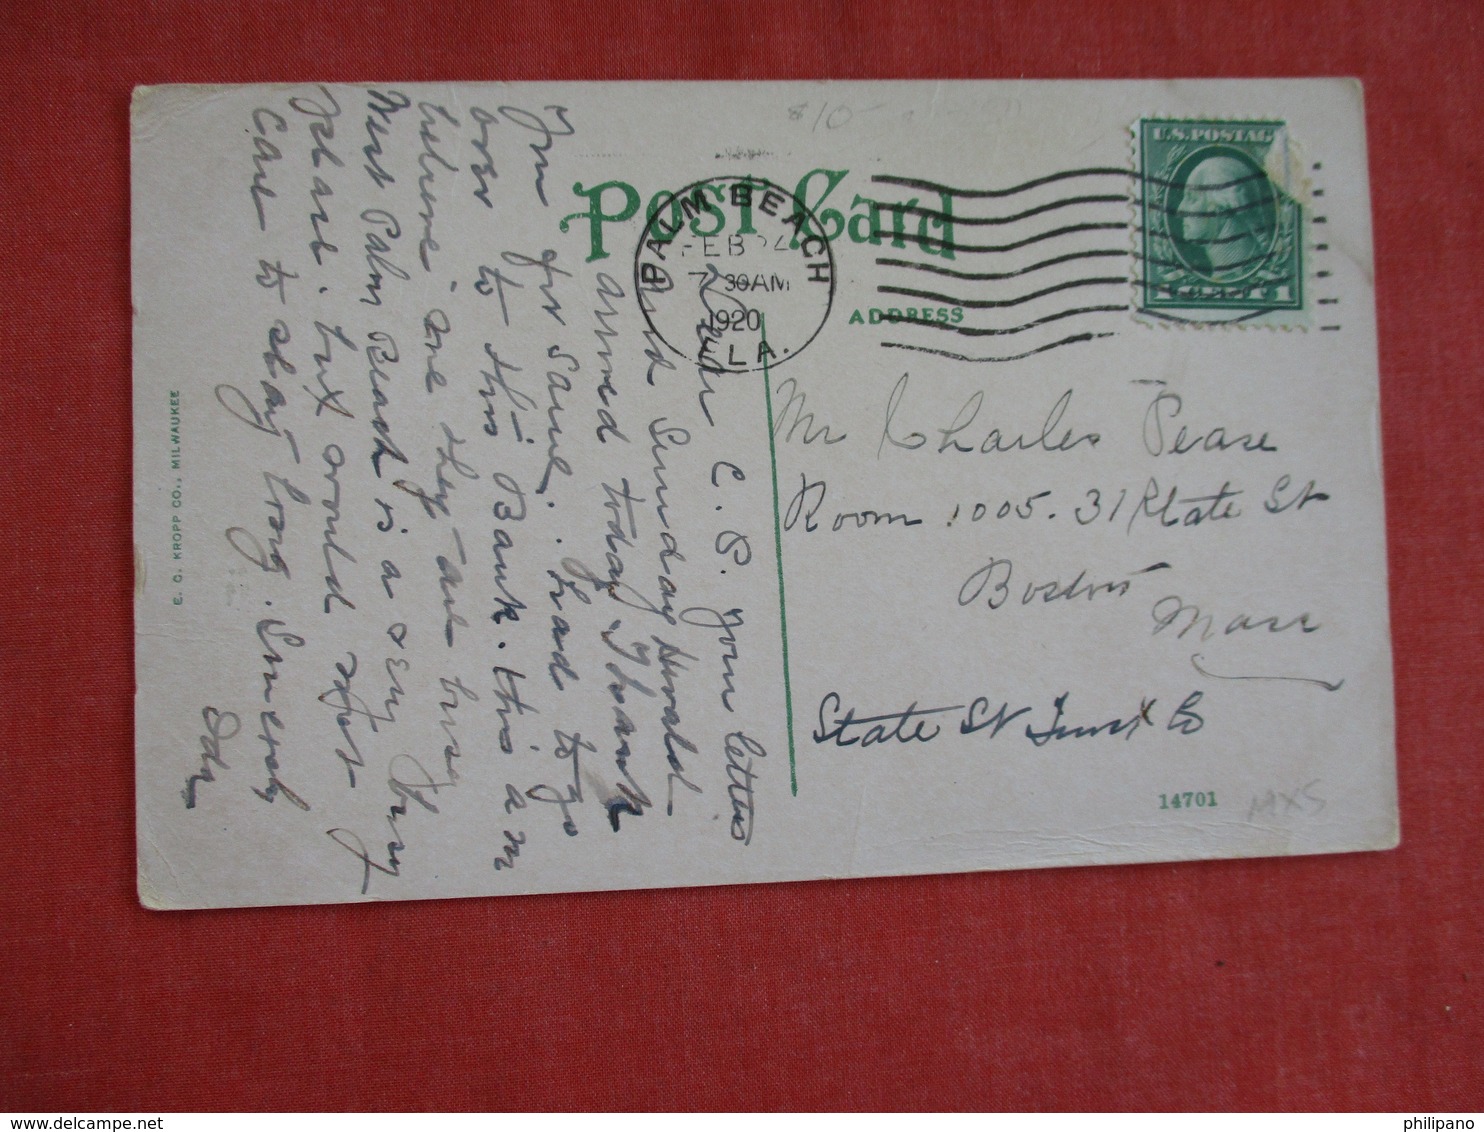 $10
POST CARD
PALM BEACH
FEB 24
7 30AM
1920
FLA.
U.S. POSTAGE
1 CENT 1
ADDRESS
Mr Charles Pease
Room 1005. 31 State St
Boston
Mass
State St Trust Co
14701
MXS
Dear C. P. your letters
and Sunday Herald
arrived today. Thank
you for same. had to go
over to this Bank. this a m
believe me they are busy
West Palm Beach is a very busy
place. but would not
Care to stay long. Sincerely
Edw
E. C. KROPP CO., MILWAUKEE
philipano